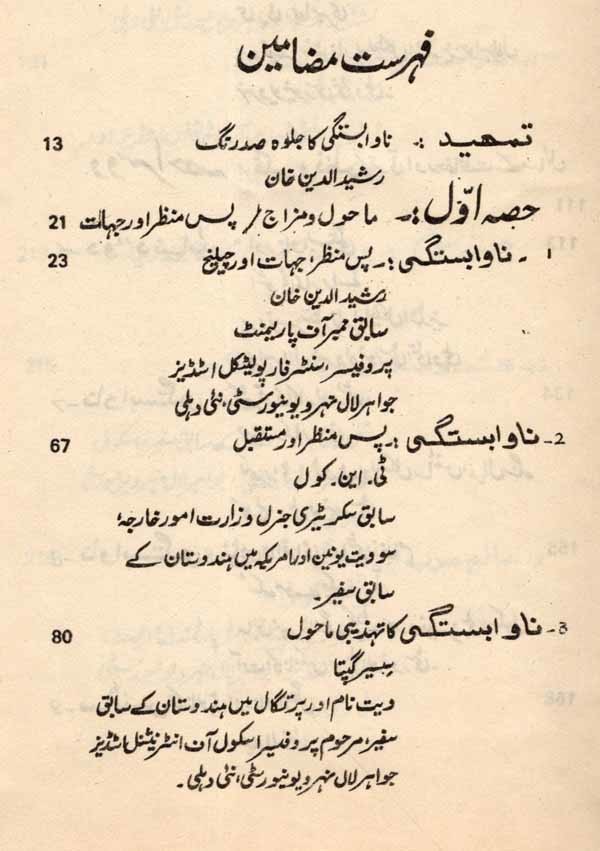 فہرست مضامین
تمہید :۔ ناوابستگی کا جلوہ صدرنگ 13
رشیدالدین خان
حصہ اوّل :۔ ماحول و مزاج / پس منظر اور جہات 21
1 ۔ ناوابستگی :۔ پس منظر، جہات اور چیلنج 23
رشیدالدین خان
سابق ممبر آف پارلیمنٹ
پروفیسر، سنٹر فار پولیٹکل اسٹڈیز
جواہر لال نہرو یونیورسٹی، نئی دہلی
2۔ ناوابستگی :۔ پس منظر اور مستقبل 67
ٹی۔ این۔ کول
سابق سکریٹری جنرل وزارت امور خارجہ؛
سوویت یونین اور امریکہ میں ہندوستان کے
سابق سفیر۔
3۔ ناوابستگی کا تہذیبی ماحول 80
سِسِر گپتا
ویت نام اور پرتگال میں ہندوستان کے سابق
سفیر، مرحوم پروفیسر اسکول آف انٹرنیشنل اسٹڈیز
جواہر لال نہرو یونیورسٹی، نئی دہلی۔